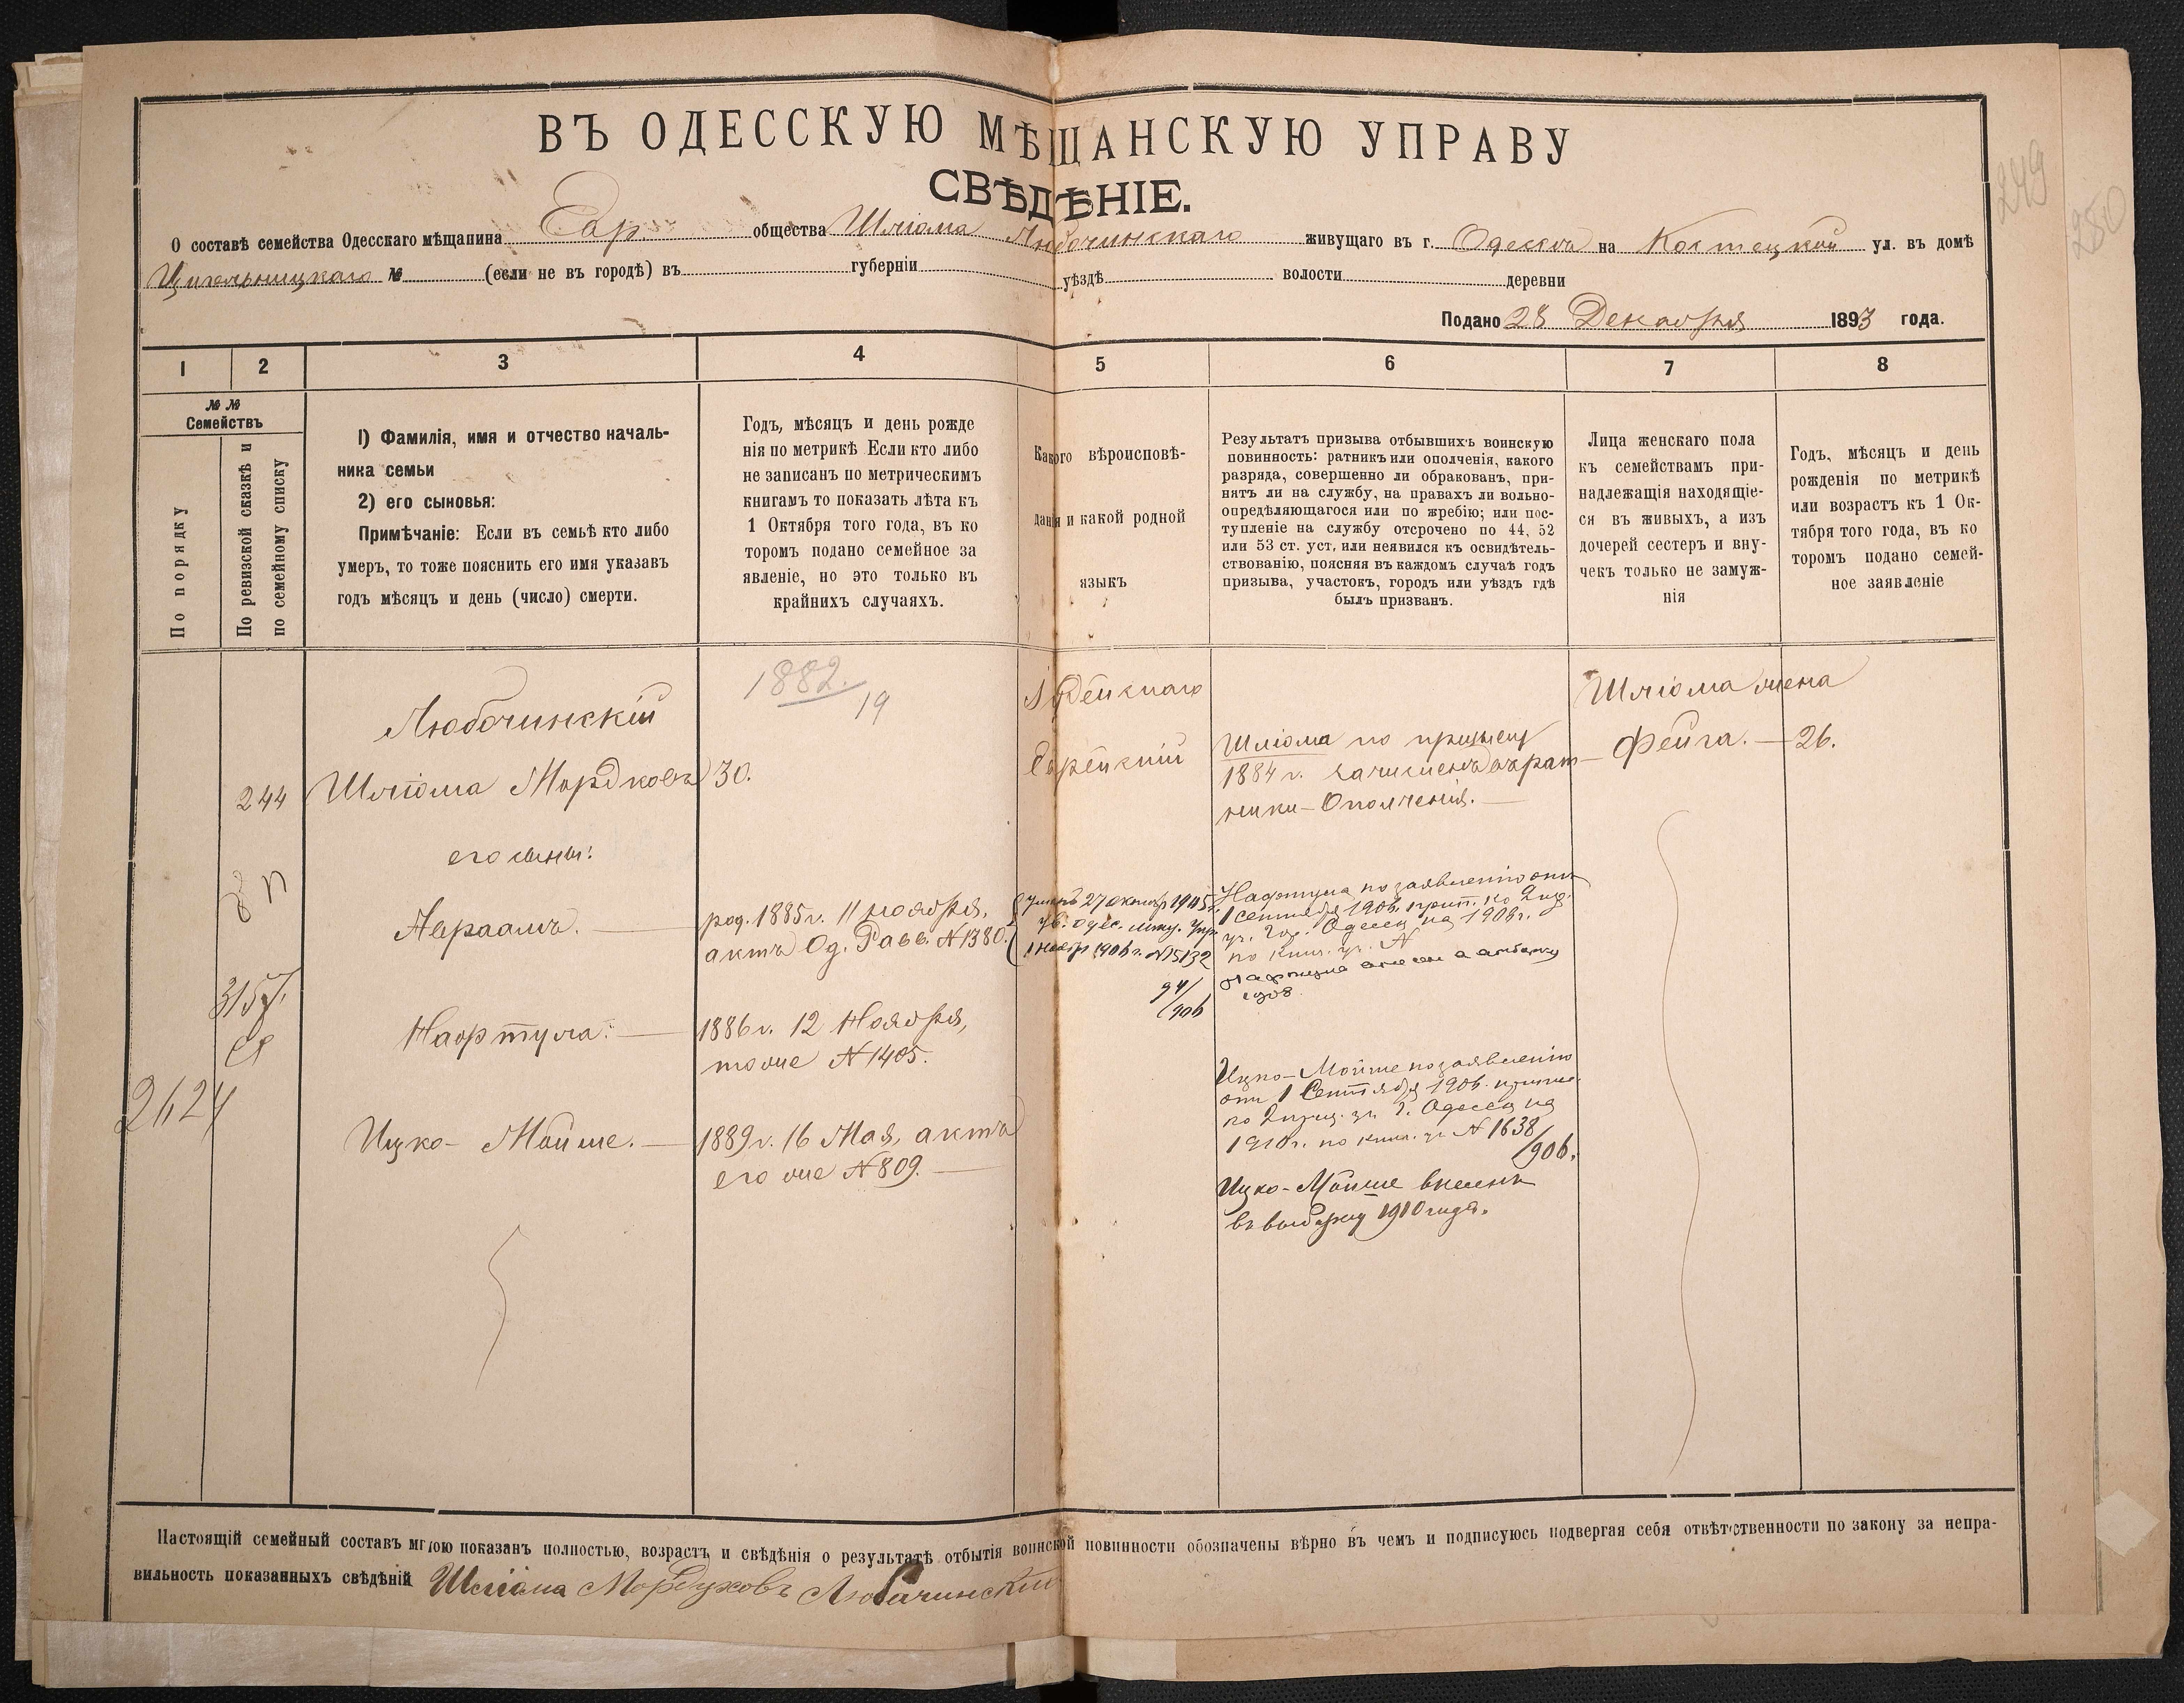 ВЪ ОДЕССКУЮ МѢЩАНСКУЮ УПРАВУ
СВѢДѢНІЕ.
О составѣ семейства Одесскаго мѣщанина Евр. общества Шліома Любочинскаго живущаго въ г. Одессѣ на Костецкой ул. въ домѣ
№ (если не въ городѣ) въ губерніи уѣздѣ волости деревни
Подано 28 Декабря 1893 года.
1 2 3 4 5 6 7 8
№ №
Семействъ
По порядку
По ревизской сказкѣ и
по семейному списку
1) Фамилія, имя и отчество началь-
ника семьи
2) его сыновья:
Примѣчаніе: Если въ семьѣ кто либо
умеръ, то тоже пояснить его имя указавъ
годъ мѣсяцъ и день (число) смерти.
Годъ, мѣсяцъ и день рожде
нія по метрикѣ Если кто либо
не записанъ по метрическимъ
книгамъ то показать лѣта къ
1 Октября того года, въ ко
торомъ подано семейное за
явленіе, но это только въ
крайнихъ случаяхъ.
Какого вѣроисповѣ-
данія и какой родной
языкъ
Результатъ призыва отбывшихъ воинскую
повинность: ратникъ или ополченія, какого
разряда, совершенно ли обракованъ, при-
нятъ ли на службу, на правахъ ли вольно-
опредѣляющагося или по жребію; или пос-
тупленіе на службу отсрочено по 44, 52
или 53 ст. уст, или неявился къ освидѣтель-
ствованію, поясняя въ каждомъ случаѣ годъ
призыва, участокъ, городъ или уѣздъ гдѣ
былъ призванъ.
Лица женскаго пола
къ семействамъ при-
надлежащія находящіе-
ся въ живыхъ, а изъ
дочерей сестеръ и вну-
чекъ только не замуж-
нія
Годъ, мѣсяцъ и день
рожденія по метрикѣ
или возрастъ къ 1 Ок-
тября того года, въ ко
торомъ подано семей-
ное заявленіе
Любочинскій
244 Шліома Мордковъ 30.
1882.
19
Іудейскаго
Еврейскій
Шліома по призыву
1884 г. зачисленъ въ рат-
ники-Ополченія.
Шліома жена
Фейга. — 26.
его сыны:
Авраамъ. —
род. 1885 г. 11 ноября,
актъ Од. Равв. N 1380.
умеръ 27 октяб 1905 г.
1 ноябр 1906 г. N 15132
94/906
Нафтула по заявленію отъ
1 Сентября 1906 г. прип. ко 2 приз.
уч. гор. Одессы на 1908 г.
по книг. уч. N
3157.
Нафтула. —
1886 г. 12 Ноября,
тоже N 1405.
2624
Ицко- Мойше. —
1889 г. 16 Мая, актъ
его же N 809. —
Ицко-Мойше по заявленію
отъ 1 Сентября 1906 г.
ко 2 приз. уч. г. Одессы на
1910 г. по книг. уч. N 1638/906.
Ицко-Мойше внесенъ
въ выборку 1910 года.
249
250
Настоящій семейный составъ мною показанъ полностью, возрастъ и свѣдѣнія о результатѣ отбытія воинской повинности обозначены вѣрно въ чемъ и подписуюсь подвергая себя отвѣтственности по закону за непра-
вильность показанныхъ свѣдѣній Шліома Мордуховъ Любачинскій